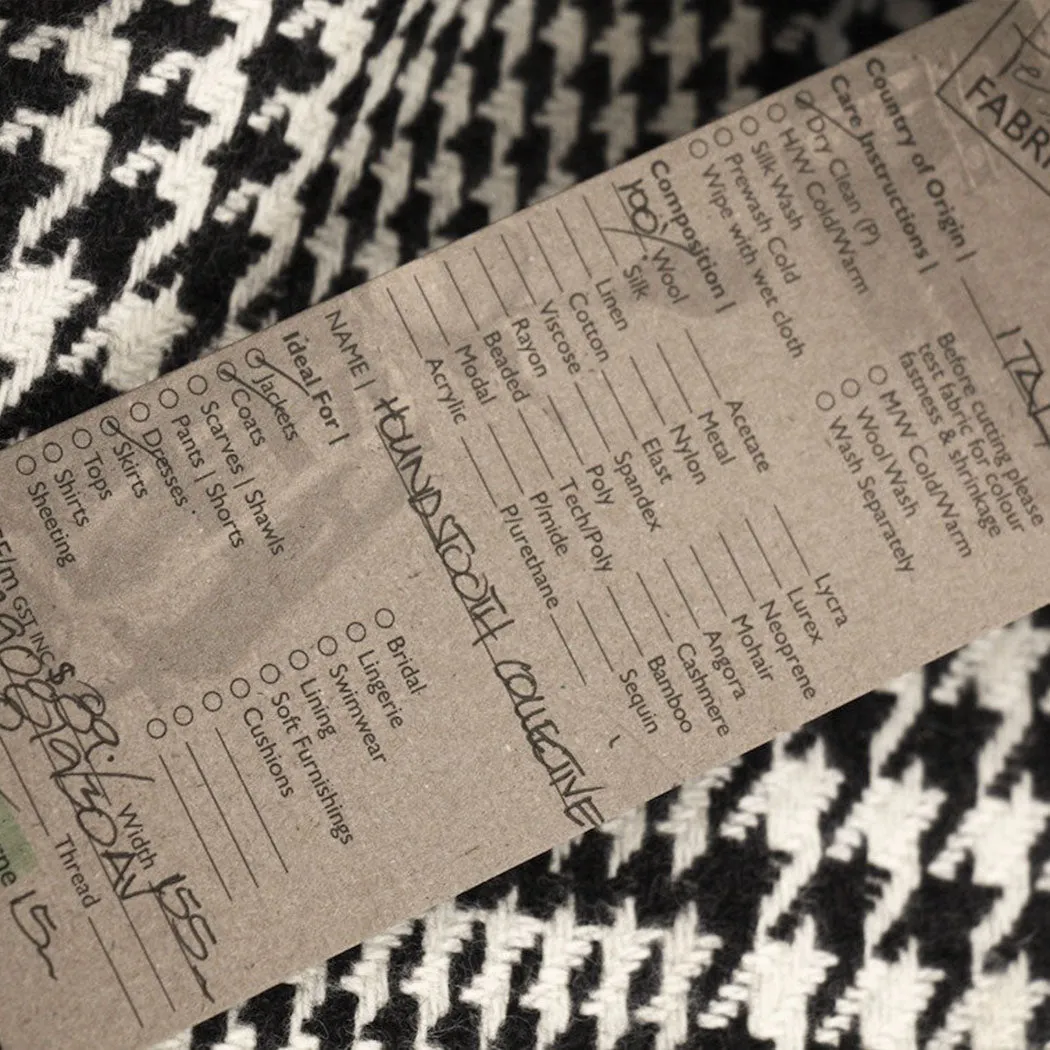 FABRI
Country of Origin |
ITALY
Care Instructions |
Dry Clean (P)
H/W Cold/Warm
Silk Wash
Prewash Cold
Wipe with wet cloth
Before cutting please
test fabric for colour
fastness & shrinkage
M/W Cold/Warm
Wool Wash
Wash Separately
Composition |
100% Wool
Silk
Linen
Cotton
Viscose
Rayon
Beaded
Modal
Acrylic
Acetate
Metal
Nylon
Elast
Spandex
Poly
Tech/Poly
P/mide
P/urethane
Lycra
Lurex
Neoprene
Mohair
Angora
Cashmere
Bamboo
Sequin
NAME | HOUNDSTOOTH COLLECTIVE
Ideal For |
Jackets
Coats
Scarves | Shawls
Pants | Shorts
Dresses
Skirts
Tops
Shirts
Sheeting
Bridal
Lingerie
Swimwear
Lining
Soft Furnishings
Cushions
/m GST INC $ 89.
Width 155
Thread
15